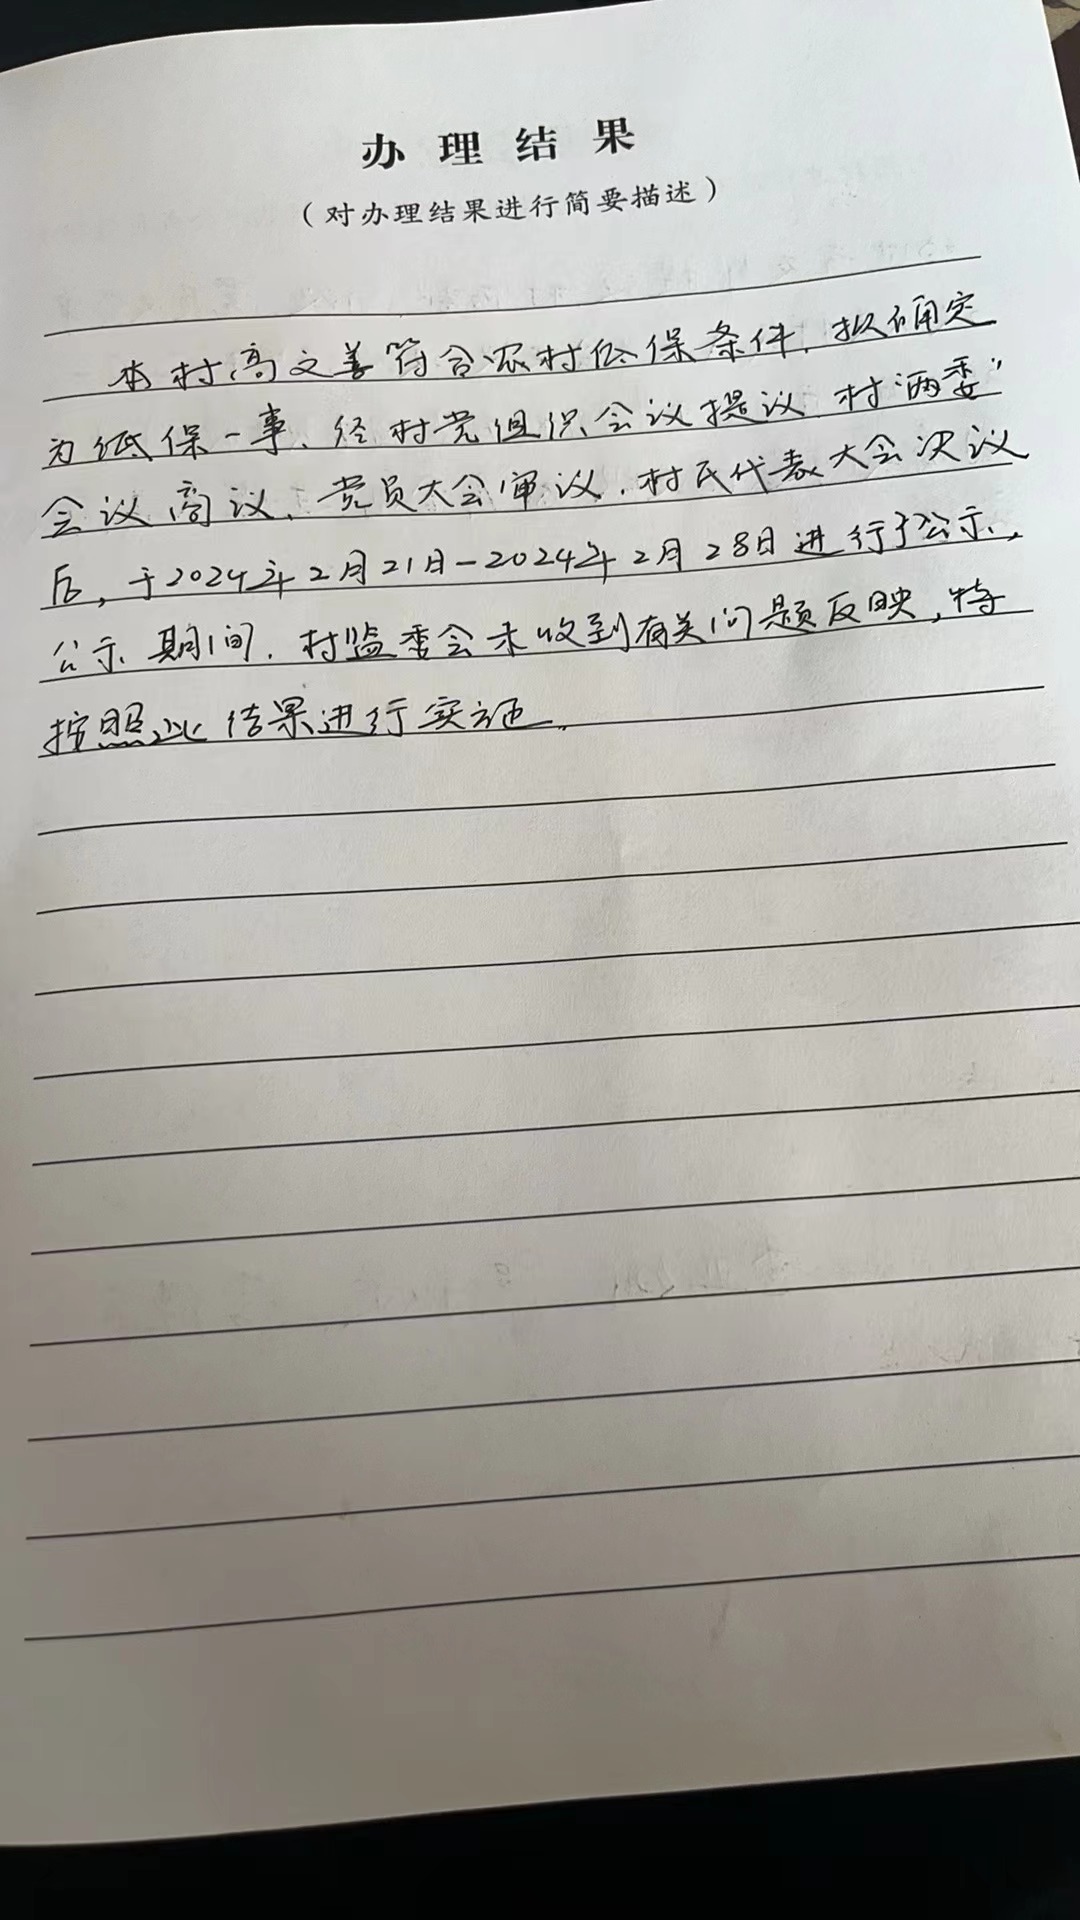 办理结果
（对办理结果进行简要描述）
本村高文善符合农村低保条件，拟确定
为低保一事、经村党组织会议提议 村“两委”
会议商议、党员大会审议、村民代表大会决议
后，于2024年2月21日-2024年2月28日进行了公示、，
公示期间，村监委会未收到有关问题反映，特
按照此结果进行实施。